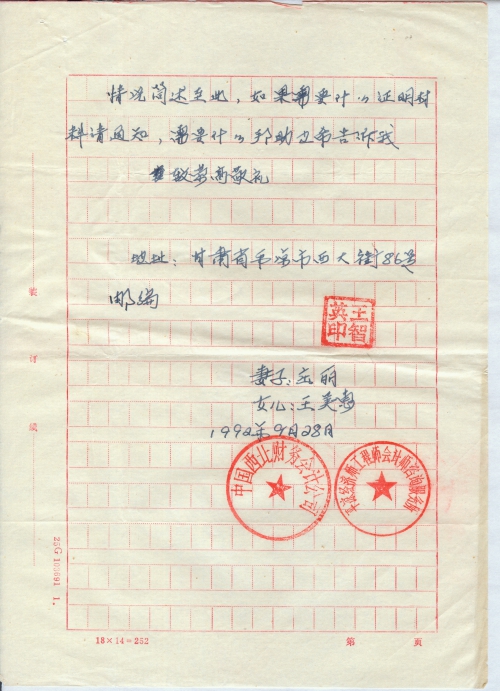 情况简述至此，如果需要什么证明材
料请通知，需要什么帮助也希告诉我
致崇高敬礼
地址：甘肃省平凉市西大街86号
邮编
王智
英印
妻子：
女儿：王美惠
1992年9月28日
中国西北财务会计公司
工程师会计师咨询服务
装
订
线
25G 103991 1.
18×14=252
第 页